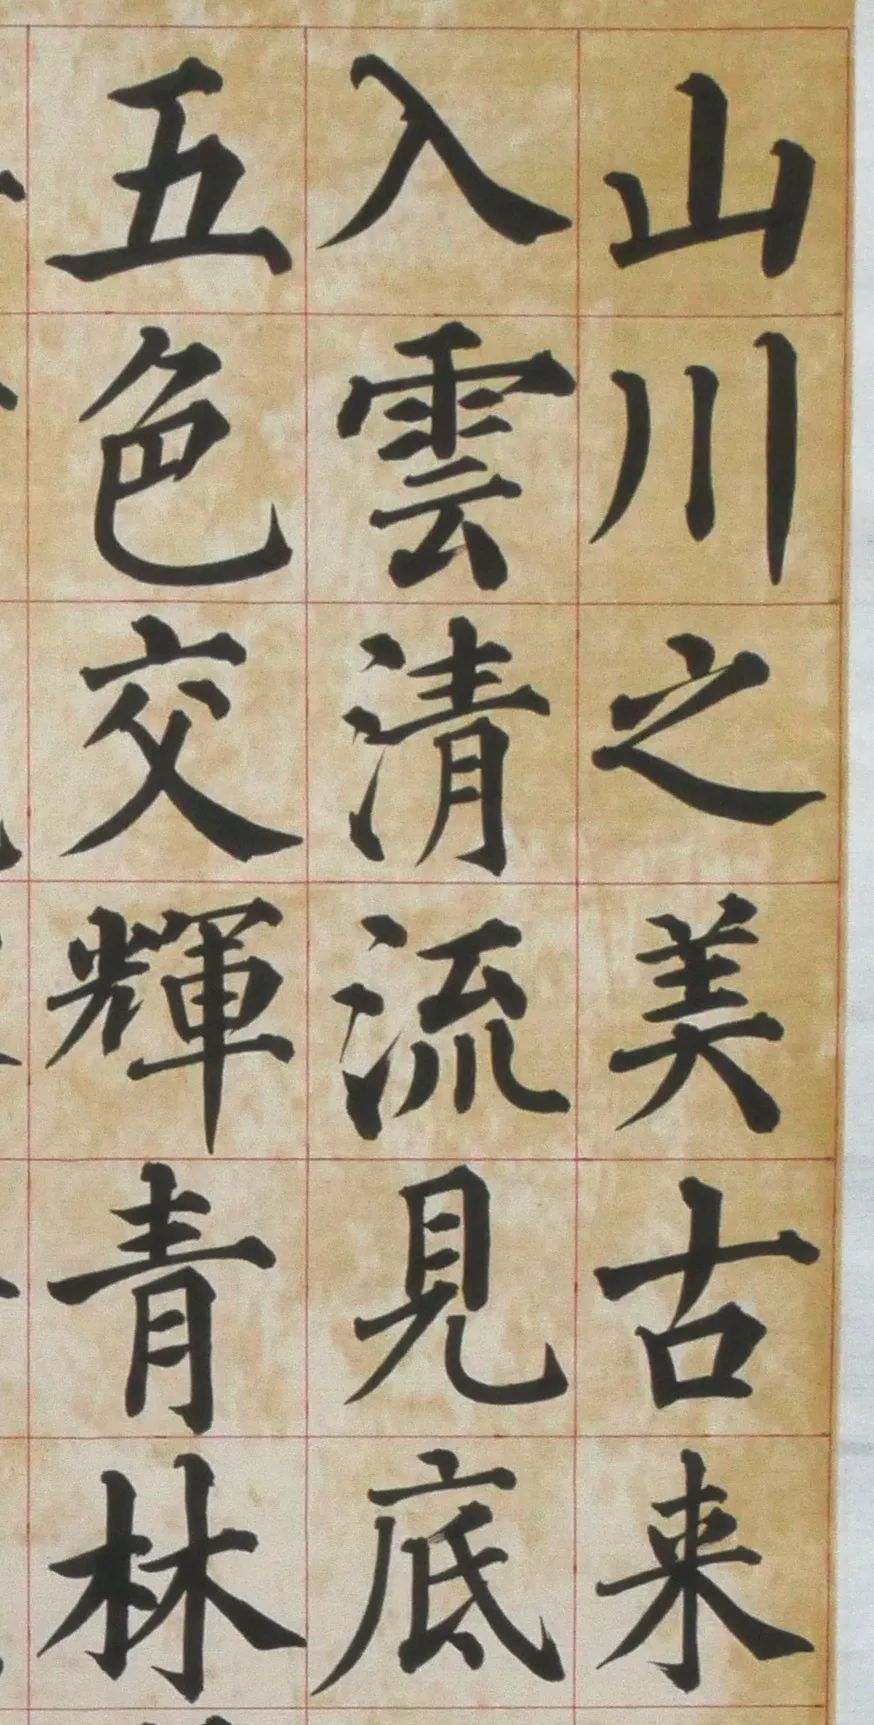 山川之美古来
入雲清流見底
五色交輝青林